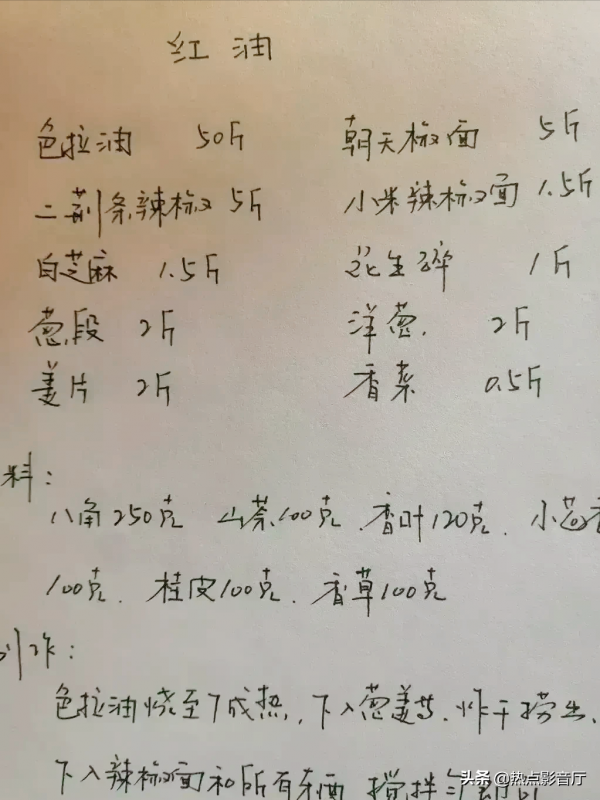 红油
色拉油 50斤 朝天椒面 5斤
二荆条辣椒 5斤 小米辣椒面 1.5斤
白芝麻 1.5斤 花生碎 1斤
葱段 2斤 洋葱 2斤
姜片 2斤 香菜 0.5斤
料:
八角250克 山萘100克、香叶120克、小茴香
100克、桂皮100克、香草100克
制作:
色拉油烧至7成热,下入葱姜等,炸干捞出、
下入辣椒面和所有东西 搅拌匀即可
头条 @热点影音厅